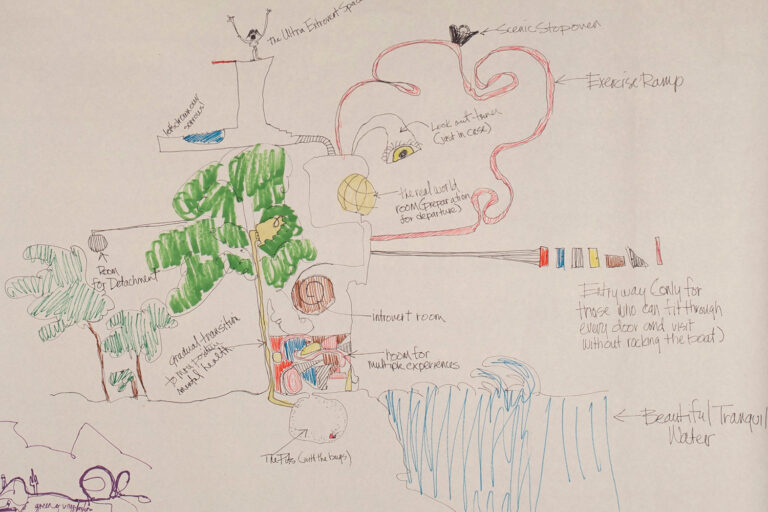 The Ultra Extrovert Space
Scenic Stopover
Exercise Ramp
let's drown our
sorrows!
Look out tower
(just in case)
the real world
room (preparation
for departure)
Room
for Detachment
Entry way (only for
those who can fit through
every door and visit
without rocking the boat)
introvert room
gradual transition
to more positive
mental health
Room for
multiple experiences
Beautiful Tranquil
Water
The Pits (with the bugs)